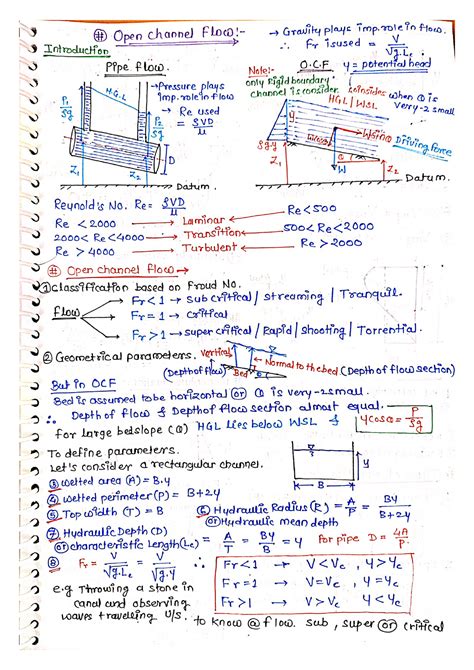 # Open Channel Flow:-
→ Gravity plays imp. role in flow.
∴ Fr is used = V/√g.Lc
Introduction
Pipe flow.
Note:-
only Rigid boundary
channel is consider
O.C.F
y = potential head
H.G.L
→ Pressure plays
imp. role in flow
→ Re used
= ρVD/μ
P1/ρg
P2/ρg
Z1
Z2
D
Datum.
coinsides when θ is
HGL/WSL very-2 small
y
ρg.y
Wsinθ Driving force
θ
W
Z1
Z2
Datum.
Reynold's No. Re = ρVD/μ
Re < 2000 ← Laminar → Re < 500
2000 < Re < 4000 ← Transition → 500 < Re < 2000
Re > 4000 ← Turbulent → Re > 2000
# Open channel flow →
① Classification based on Froud No.
Flow
Fr < 1 → Sub Critical / Streaming / Tranquil.
Fr = 1 → Critical
Fr > 1 → super critical / Rapid / Shooting / Torrential.
② Geometrical parameters.
Vertical
(Depth of flow)
Bed
Normal to the bed (Depth of flow section)
But in OCF
Bed is assumed to be horizontal or θ is very-2 small.
∴ Depth of flow & Depth of flow section almost equal.
for large bed slope (θ) HGL lies below WSL &
ycosθ = P/ρg
To define parameters.
Let's consider a rectangular channel.
y
B
③ Wetted area (A) = B.y
④ Wetted perimeter (P) = B+2y
⑤ Top width (T) = B
⑥ Hydraulic Radius (R) = A/P = By/B+2y
or Hydraulic mean depth
⑦ Hydraulic Depth (D)
or characteristic Length (Lc) = A/T = By/B = y
For pipe D = 4A/P.
⑧ Fr = V/√g.Lc = V/√g.y
∴
Fr < 1 → V < Vc , y > yc
Fr = 1 → V = Vc , y = yc
Fr > 1 → V > Vc , y < yc
e.g Throwing a stone in
canal and observing
waves travelling U/s. to know @ flow. sub, super or critical